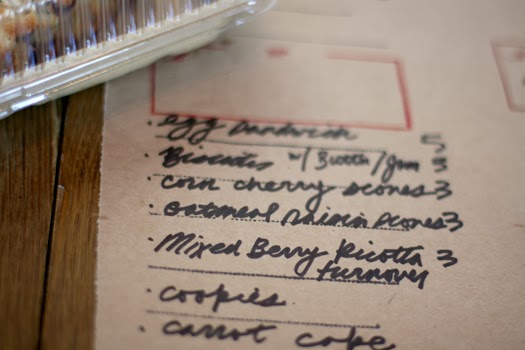 · egg sandwich 5
· Biscuits w/ Butter/Jam 3
· corn cherry scones 3
· oatmeal raisin scones 3
· Mixed Berry Ricotta 3
turnover
· cookies
· carrot cake